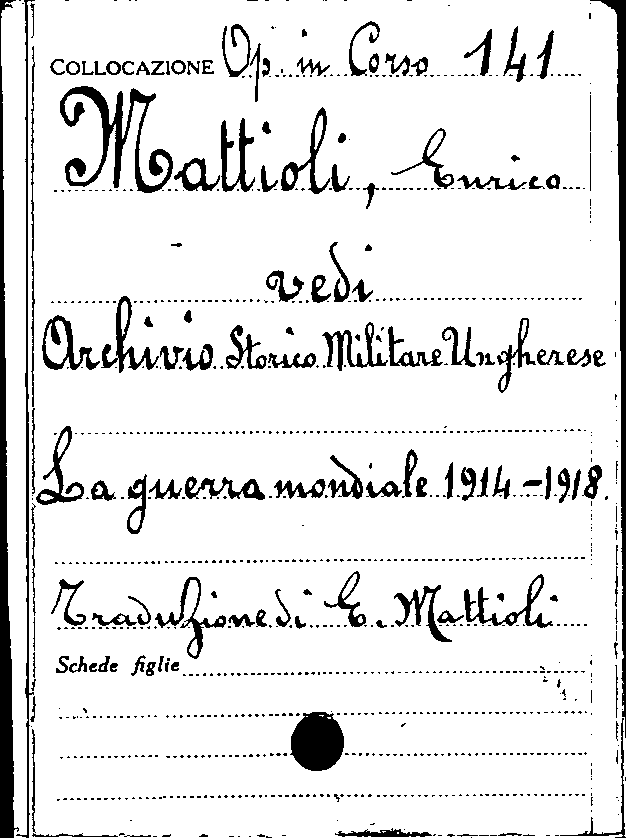 COLLOCAZIONE Op. in Corso 141
Mattioli, Enrico
vedi
Archivio Storico Militare Ungherese
La guerra mondiale 1914-1918.
Traduzione di E. Mattioli
Schede figlie